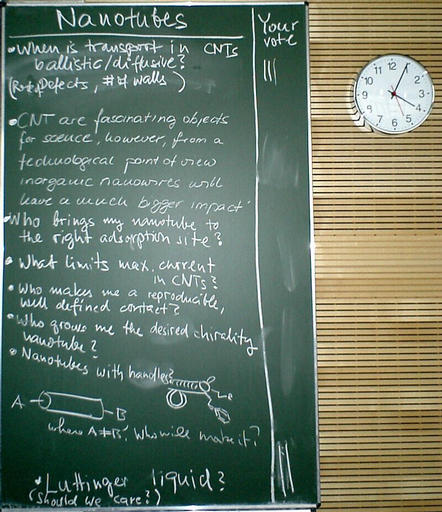 Nanotubes
Your
vote
• When is transport in CNTs
ballistic/diffusive?
Defects, ## walls )
|||
• CNT are fascinating objects
for science, however, from a
technological point of view
inorganic nanowires will
have a much bigger impact
• Who brings my nanotube to
the right adsorption site?
• What limits max. current
in CNTs?
• Who makes me a reproducible,
well defined contact?
• Who grows me the desired chirality
nanotube?
• Nanotubes with handles?
A B
where A≠B, who will make it?
• Luttinger liquid?
(should we care?)
|||
12
1
2
3
4
5
6
7
8
9
10
11